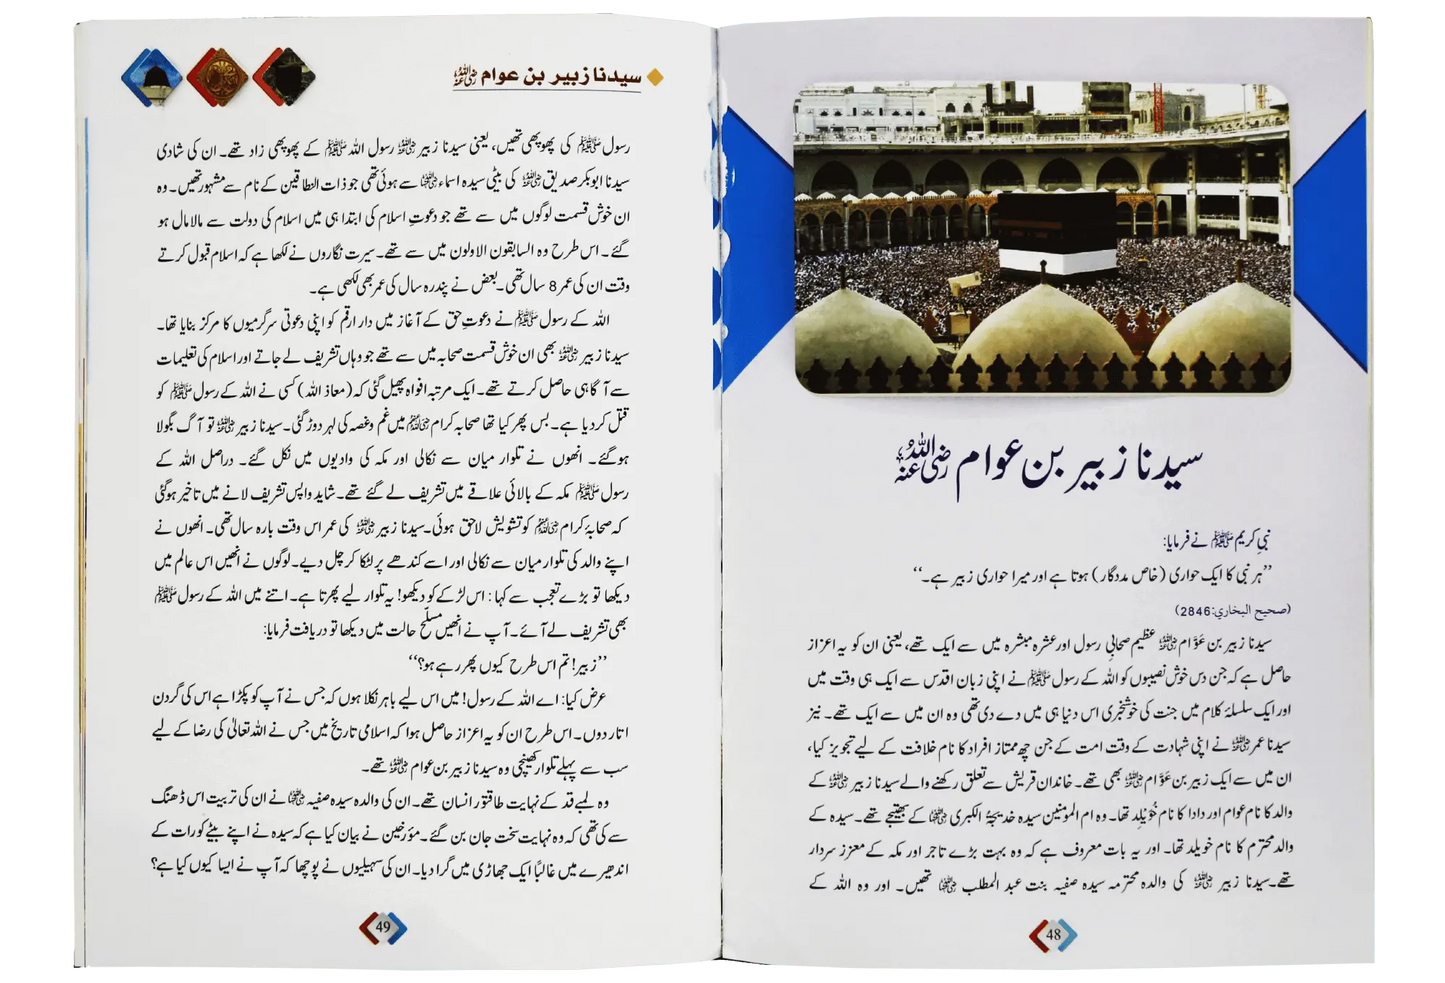 سیدنا زبیر بن عوام رضی اللہ عنہ
نبی کریم ﷺ نے فرمایا:
’’ہر نبی کا ایک حواری (خاص مددگار) ہوتا ہے اور میرا حواری زبیر ہے۔‘‘
(صحیح البخاري:2846)
سیدنا زبیر بن عَوَّام رضی اللہ عنہ عظیم صحابیِ رسول اور عشرہ مبشرہ میں سے ایک تھے، یعنی ان کو یہ اعزاز
حاصل ہے کہ جن دس خوش نصیبوں کو اللہ کے رسول ﷺ نے اپنی زبان اقدس سے ایک ہی وقت میں
اور ایک سلسلۂ کلام میں جنت کی خوشخبری اس دنیا ہی میں دے دی تھی وہ ان میں سے ایک تھے۔ نیز
سیدنا عمر رضی اللہ عنہ نے اپنی شہادت کے وقت امت کے جن چھ ممتاز افراد کا نام خلافت کے لیے تجویز کیا،
ان میں سے ایک زبیر بن عَوَّام رضی اللہ عنہ بھی تھے۔ خاندان قریش سے تعلق رکھنے والے سیدنا زبیر رضی اللہ عنہ کے
والد کا نام عوام اور دادا کا نام خُوَیلِد تھا۔ وہ ام المؤمنین سیدہ خدیجۃ الکبری رضی اللہ عنہا کے بھتیجے تھے۔ سیدہ کے
والد محترم کا نام خویلد تھا۔ اور یہ بات معروف ہے کہ وہ بہت بڑے تاجر اور مکہ کے معزز سردار
تھے۔ سیدنا زبیر رضی اللہ عنہ کی والدہ محترمہ سیدہ صفیہ بنت عبد المطلب رضی اللہ عنہا تھیں۔ اور وہ اللہ کے
48
سیدنا زبیر بن عوام رضی اللہ عنہ
رسول ﷺ کی پھوپھی تھیں، یعنی سیدنا زبیر رضی اللہ عنہ رسول اللہ ﷺ کے پھوپھی زاد تھے۔ ان کی شادی
سیدنا ابوبکر صدیق رضی اللہ عنہ کی بیٹی سیدہ اسماء رضی اللہ عنہا سے ہوئی تھی جو ذات النطاقین کے نام سے مشہور تھیں۔ وہ
ان خوش قسمت لوگوں میں سے تھے جو دعوتِ اسلام کی ابتدا ہی میں اسلام کی دولت سے مالا مال ہو
گئے۔ اس طرح وہ السابقون الاولون میں سے تھے۔ سیرت نگاروں نے لکھا ہے کہ اسلام قبول کرتے
وقت ان کی عمر 8 سال تھی۔ بعض نے پندرہ سال کی عمر بھی لکھی ہے۔
اللہ کے رسول ﷺ نے دعوتِ حق کے آغاز میں دار ارقم کو اپنی دعوتی سرگرمیوں کا مرکز بنایا تھا۔
سیدنا زبیر رضی اللہ عنہ بھی ان خوش قسمت صحابہ میں سے تھے جو وہاں تشریف لے جاتے اور اسلام کی تعلیمات
سے آگاہی حاصل کرتے تھے۔ ایک مرتبہ افواہ پھیل گئی کہ (معاذ اللہ) کسی نے اللہ کے رسول ﷺ کو
قتل کر دیا ہے۔ بس پھر کیا تھا صحابہ کرام رضی اللہ عنہم میں غم و غصہ کی لہر دوڑ گئی۔ سیدنا زبیر رضی اللہ عنہ تو آگ بگولا
ہو گئے۔ انھوں نے تلوار میان سے نکالی اور مکہ کی وادیوں میں نکل گئے۔ دراصل اللہ کے
رسول ﷺ مکہ کے بالائی علاقے میں تشریف لے گئے تھے۔ شاید واپس تشریف لانے میں تاخیر ہوگئی
کہ صحابۂ کرام رضی اللہ عنہم کو تشویش لاحق ہوئی۔ سیدنا زبیر رضی اللہ عنہ کی عمر اس وقت بارہ سال تھی۔ انھوں نے
اپنے والد کی تلوار میان سے نکالی اور اسے کندھے پر لٹکا کر چل دیے۔ لوگوں نے انھیں اس عالم میں
دیکھا تو بڑے تعجب سے کہا: اس لڑکے کو دیکھو! یہ تلوار لیے پھرتا ہے۔ اتنے میں اللہ کے رسول ﷺ
بھی تشریف لے آئے۔ آپ نے انھیں مسلّح حالت میں دیکھا تو دریافت فرمایا:
’’زبیر! تم اس طرح کیوں پھر رہے ہو؟‘‘
عرض کیا: اے اللہ کے رسول! میں اس لیے باہر نکلا ہوں کہ جس نے آپ کو پکڑا ہے اس کی گردن
اتار دوں۔ اس طرح ان کو یہ اعزاز حاصل ہوا کہ اسلامی تاریخ میں جس نے اللہ تعالیٰ کی رضا کے لیے
سب سے پہلے تلوار کھینچی وہ سیدنا زبیر بن عوام رضی اللہ عنہ تھے۔
وہ لمبے قد کے نہایت طاقتور انسان تھے۔ ان کی والدہ سیدہ صفیہ رضی اللہ عنہا نے ان کی تربیت اس ڈھنگ
سے کی تھی کہ وہ نہایت سخت جان بن گئے۔ مؤرخین نے بیان کیا ہے کہ سیدہ نے اپنے بیٹے کو رات کے
اندھیرے میں غالباً ایک جھاڑی میں گرا دیا۔ ان کی سہیلیوں نے پوچھا کہ آپ نے ایسا کیوں کیا ہے؟
49